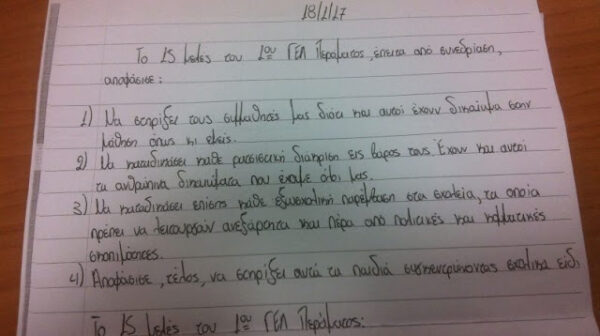 18/1/17
Το 15μελές του 1ου ΓΕΛ Περάματος, έπειτα από συνεδρίαση,
αποφάσισε:
1) Να στηρίξει τους συμμαθητές μας διότι και αυτοί έχουν δικαίωμα στην
μάθηση όπως κι εμείς.
2) Να καταδικάσει κάθε ρατσιστική διάκριση εις βάρος τους. Έχουν και αυτοί
τα ανθρώπινα δικαιώματα που έχουμε όλοι μας.
3) Να καταδικάσει επίσης κάθε εξωσχολική παρέμβαση στα σχολεία, τα οποία
πρέπει να λειτουργούν ανεξάρτητα και πέρα από πολιτικές και κομματικές
σκοπιμότητες.
4) Αποφάσισε, τέλος, να στηρίξει αυτά τα παιδιά συγκεντρώνοντας σχολικά είδ
Το 15μελές του 1ου ΓΕΛ Περάματος: